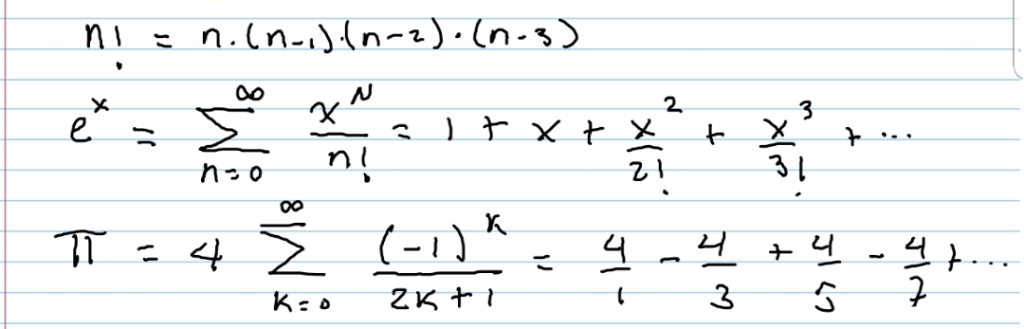 n! = n.(n-1).(n-2).(n-3)
e^x = ∑_{n=0}^{∞} x^N/n! = 1 + x + x^2/2! + x^3/3! + ...
π = 4 ∑_{k=0}^{∞} (-1)^k/(2k+1) = 4/1 - 4/3 + 4/5 - 4/7 + ...